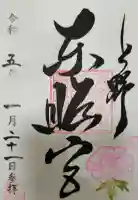 上野
東照宮
令和五年
一月二十一日参拝